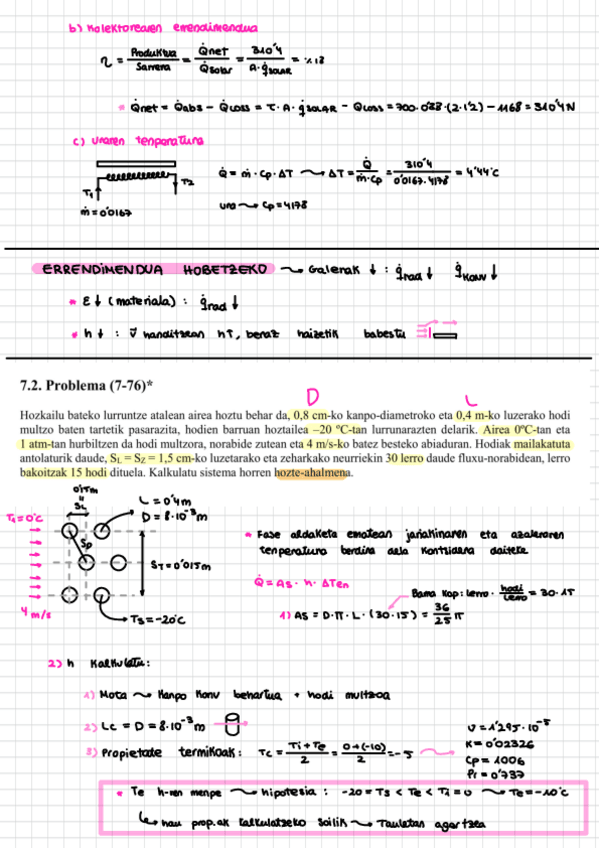 b) Kolektorearen errendimendua
η = Produktua/Sarrera = Q̇net/Q̇solar = 310'4/A·q̇SOLAR = %18
* Q̇net = Q̇abs - Q̇loss = τ·A·q̇SOLAR - Qloss = 700·0'88·(2·1'2) - 1168 = 310'4 N
c) Uraren tenperatura
Q̇ = ṁ·Cp·ΔT → ΔT = Q̇/ṁ·Cp = 310'4/0'0167·4178 = 4'44°C
T1 T2
ṁ = 0'0167
ura → Cp = 4178
ERRENDIMENDUA HOBETZEKO → Galerak ↓ : q̇rad ↓ q̇konv ↓
* ε ↓ (materiala) : q̇rad ↓
* h ↓ : v⃗ handitzean h↑, beraz haizetik babestu
7.2. Problema (7-76)*
D L
Hozkailu bateko lurruntze atalean airea hoztu behar da, 0,8 cm-ko kanpo-diametroko eta 0,4 m-ko luzerako hodi
multzo baten tartetik pasarazita, hodien barruan hoztailea –20 ºC-tan lurrunarazten delarik. Airea 0ºC-tan eta
1 atm-tan hurbiltzen da hodi multzora, norabide zutean eta 4 m/s-ko batez besteko abiaduran. Hodiak mailakatuta
antolaturik daude, SL = SZ = 1,5 cm-ko luzetarako eta zeharkako neurriekin 30 lerro daude fluxu-norabidean, lerro
bakoitzak 15 hodi dituela. Kalkulatu sistema horren hozte-ahalmena.
0'015m
=
SL
L = 0'4m
D = 8·10⁻³m
T1=0°C
SD
ST = 0'015m
4 m/s
Ts = -20°C
* Fase aldaketa ematean jariakinaren eta azaleraren
tenperatura berdina dela kontsidera daiteke
Q̇ = As·h·ΔTen
Bama kop: lerro · hodi/lerro = 30·15
1) As = D·π·L·(30·15) = 36/25 π
2) h kalkulatu:
1) Mota → Kanpo konv behartua + hodi multzoa
2) Lc = D = 8·10⁻³m
3) Propietate termikoak: Tc = Ti+Te/2 = 0+(-10)/2 = -5
ν = 1'295·10⁻⁵
K = 0'02326
Cp = 1006
Pr = 0'737
* Te h-ren menpe → hipotesia : -20 = Ts < Te < T1 = 0 → Te = -10°C
↳ hau prop.ak kalkulatzeko soilik → Tauletan agertzea